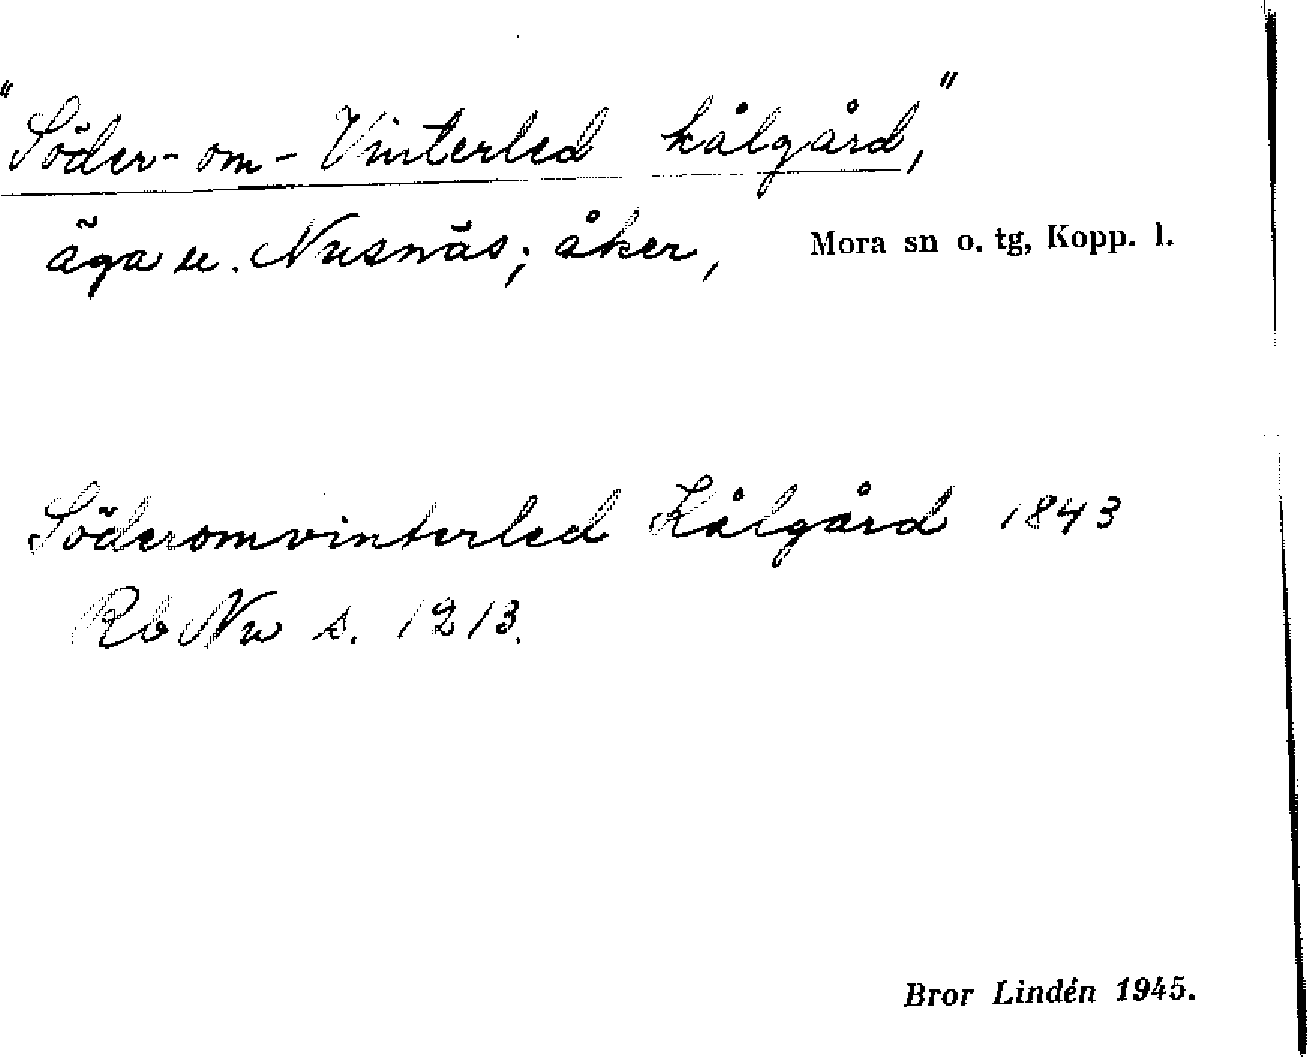 "Söder-om-Vinterled kålgård,"
äga u. Nusnäs; åker, Mora sn o. tg, Kopp. l.
Söderomvinterled Kålgård 1843
Rb Nu s. 1213.
Bror Lindén 1945.